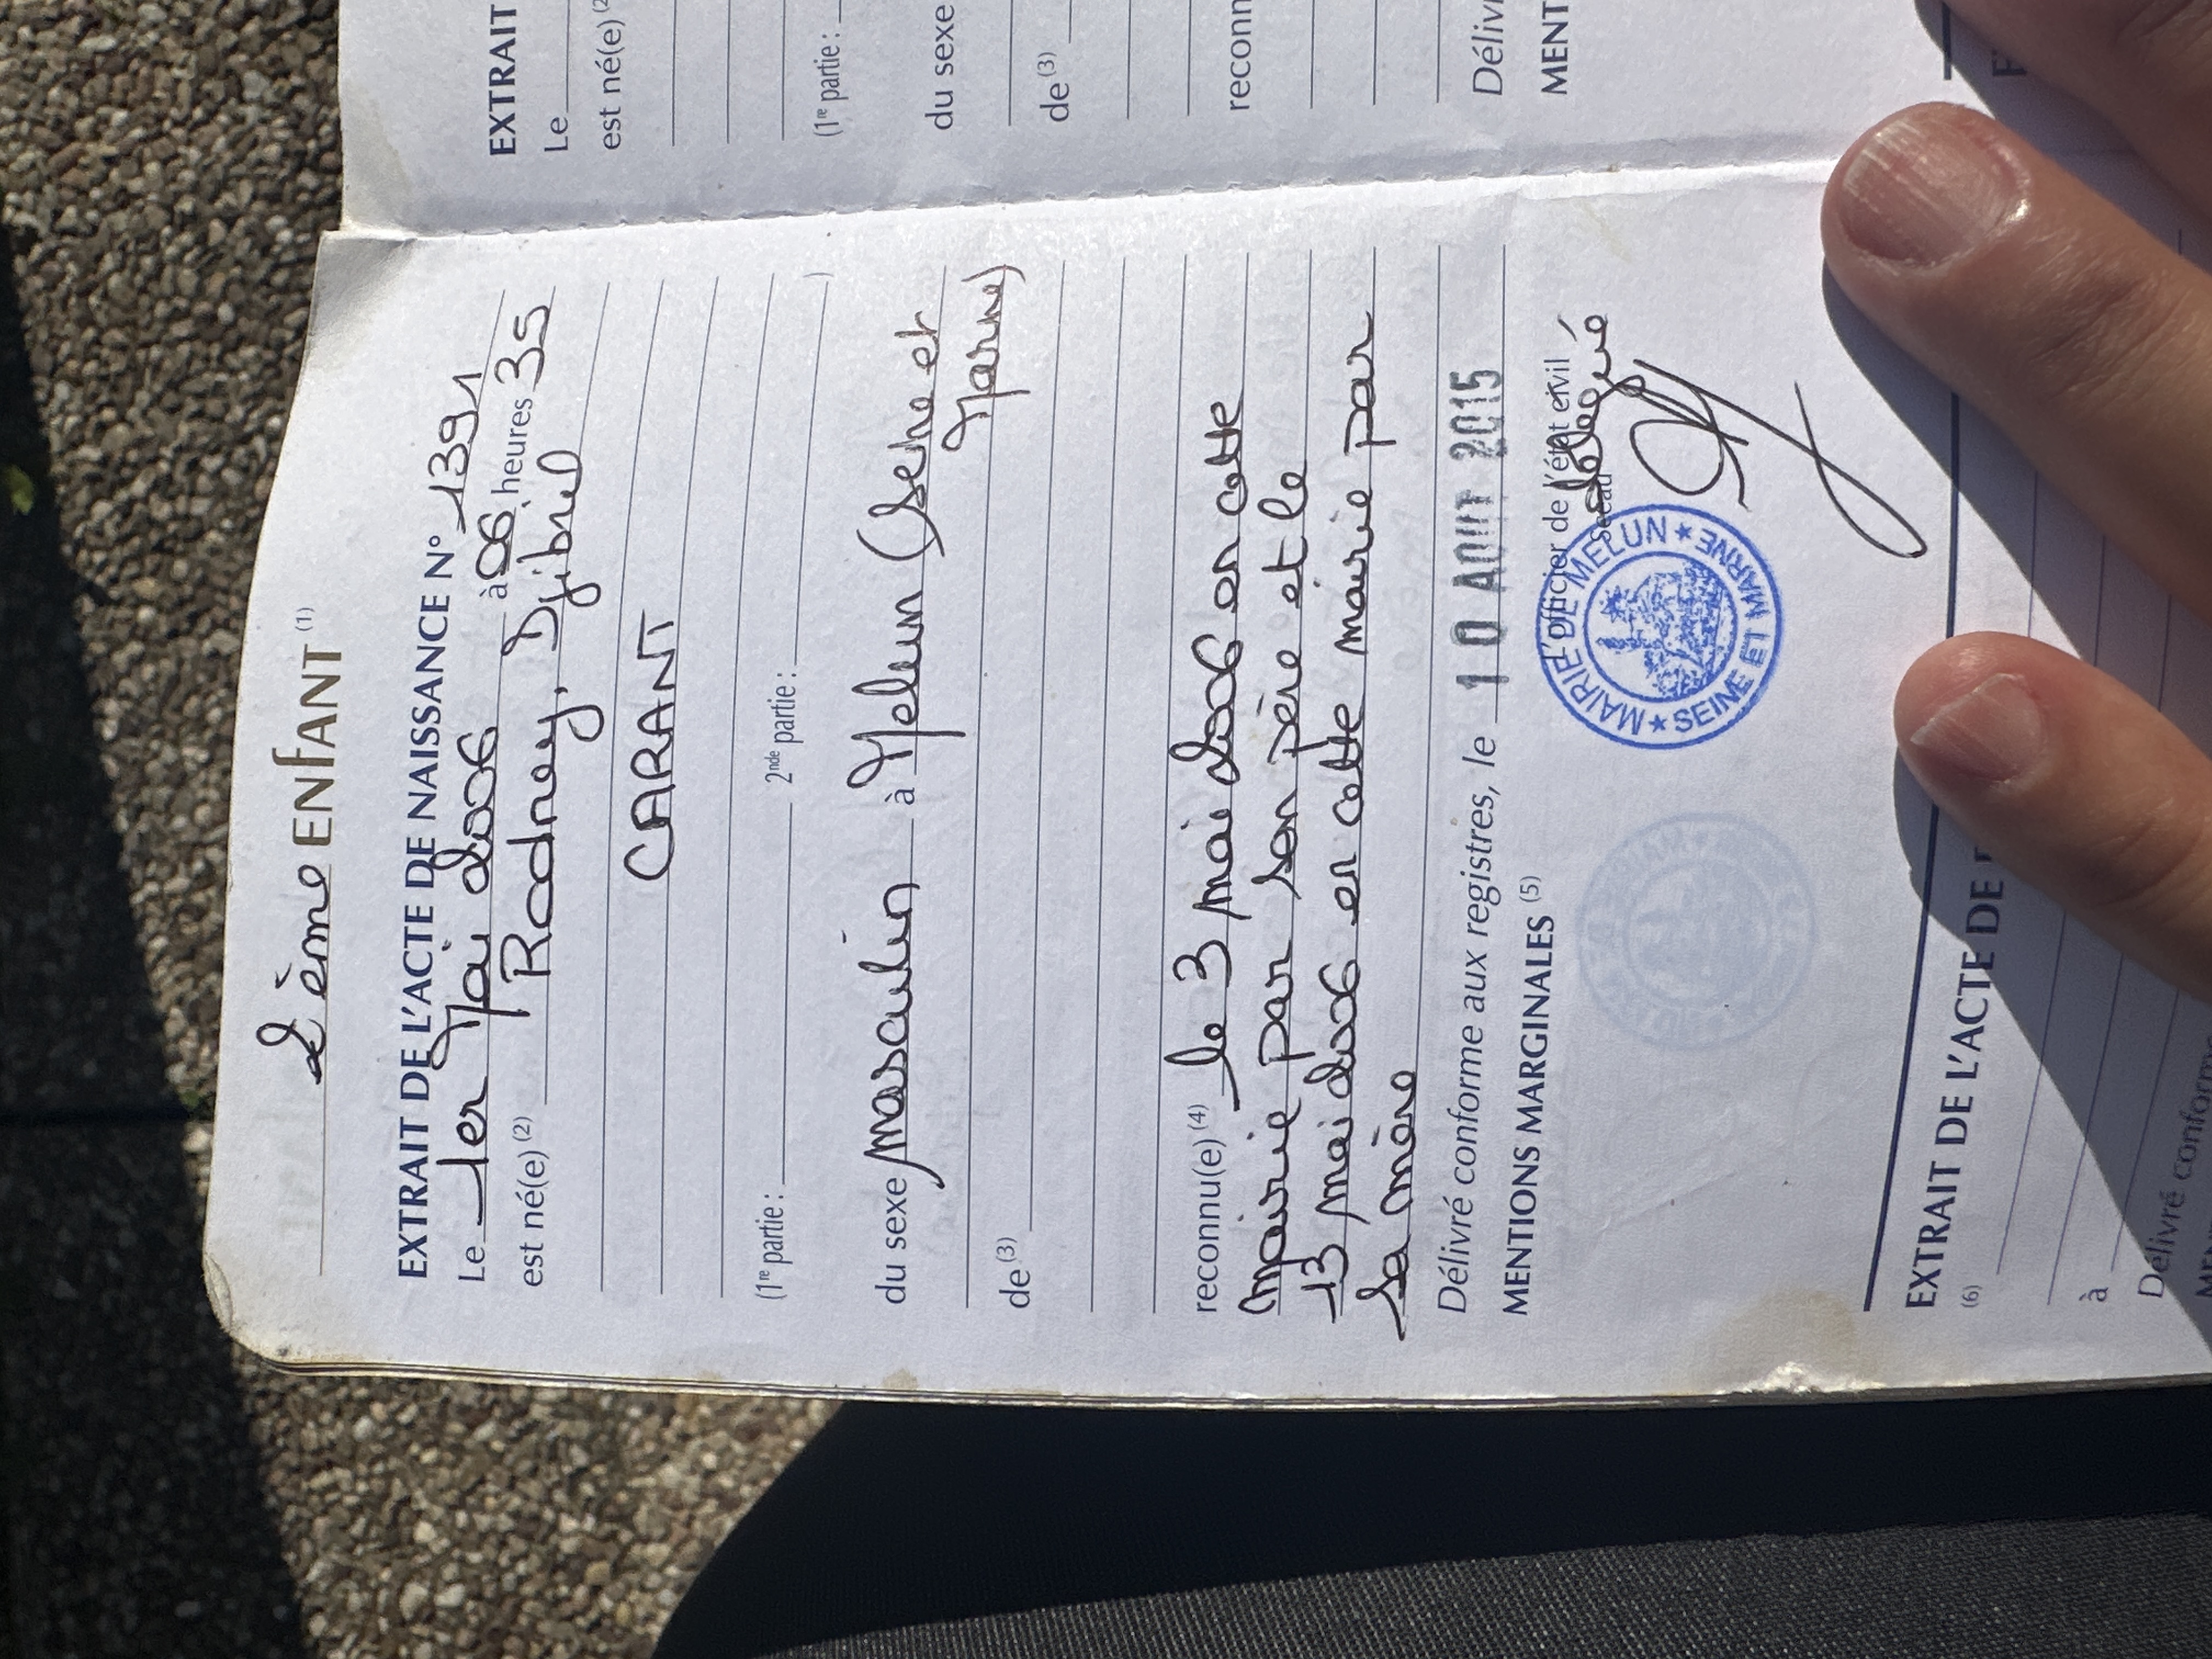 2 ème ENFANT (1)
EXTRAIT DE L'ACTE DE NAISSANCE N° 1391
Le 1er Mai 2006 à 06 heures 35
est né(e) (2) Rodney, Djibril
CARANT
(1re partie : 2nde partie : )
du sexe masculin à Melun (Seine et
Marne)
de (3)
reconnu(e) (4) le 3 mai 2006 en cette
mairie par son père et le
13 mai 2006 en cette mairie par
sa mère
Délivré conforme aux registres, le 10 AOUT 2015
MENTIONS MARGINALES (5)
L'officier de l'état civil
Sceau
délégué
MAIRIE DE MELUN ★ SEINE ET MARNE ★
EXTRAIT DE L'ACTE DE
(6)
à
Délivré conforme
EXTRAIT
Le
est né(e) (2
(1re partie :
du sexe
de (3)
reconn
Délivr
MENT